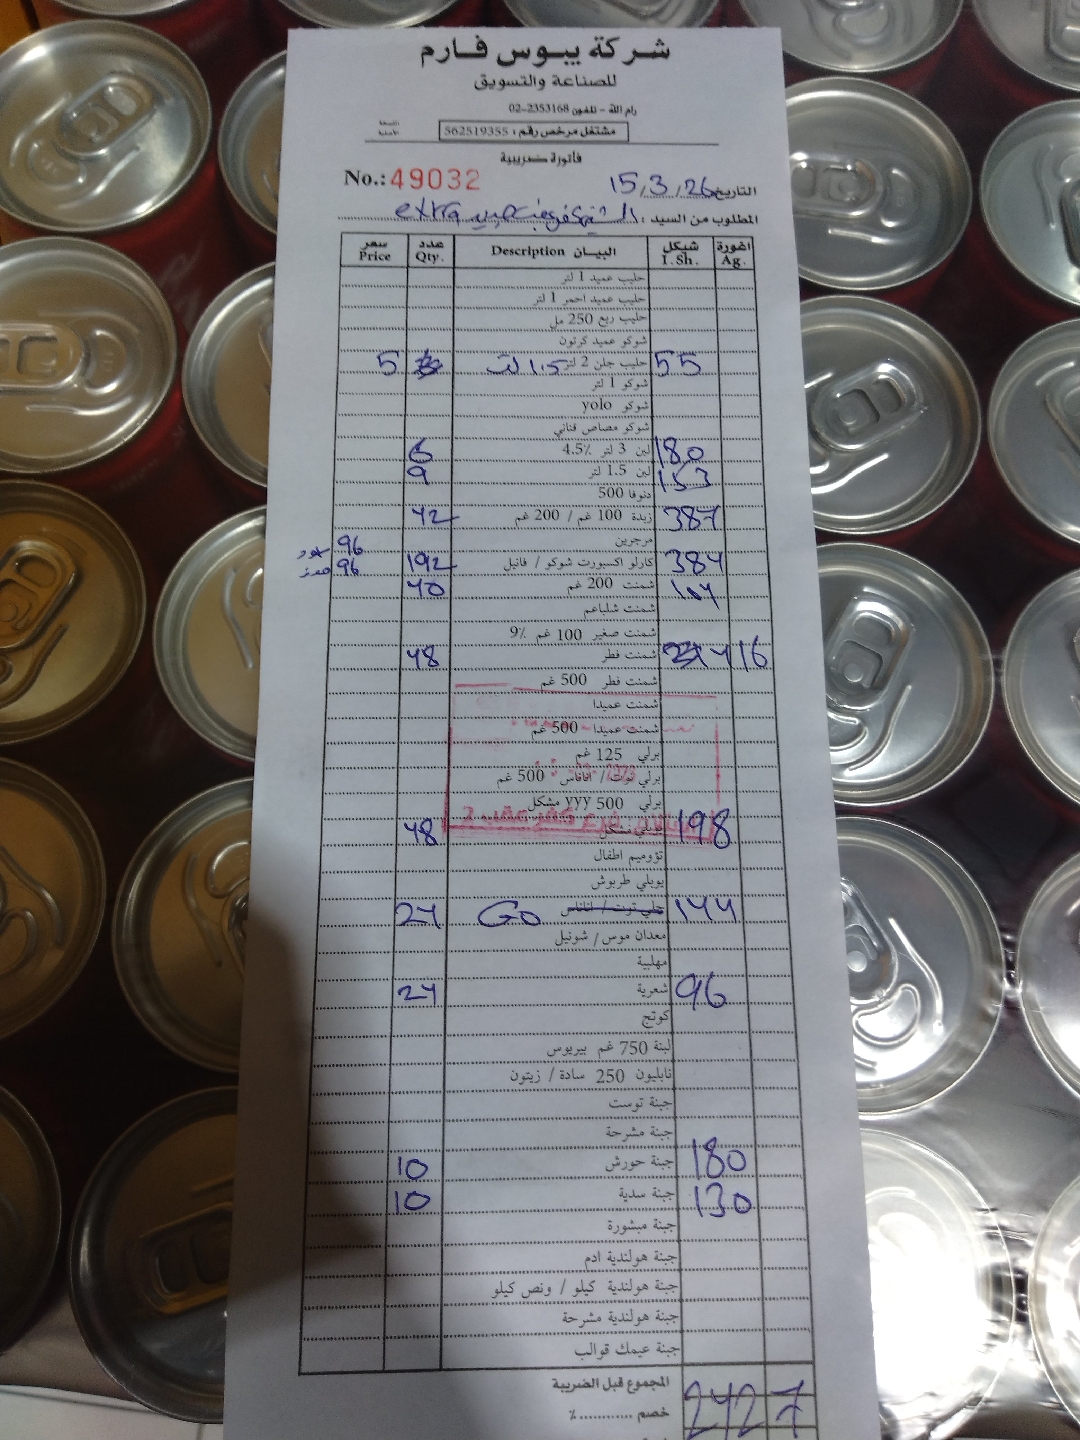 شركة يبوس فارم
للصناعة والتسويق
رام الله - تلفون 2353168-02
مشتغل مرخص رقم : 562519355
النسخة الأصلية
فاتورة ضريبية
No.: 49032
التاريخ 15/3/26
المطلوب من السيد : extra
سعر Price عدد Qty. البيان Description شيكل I.Sh. اغورة Ag.
حليب عميد 1 لتر
حليب عميد احمر 1 لتر
حليب ربع 250 مل
شوكو عميد كرتون
5 حليب جلن 2 لتر 1.5 لتر 55
شوكو 1 لتر
شوكو yolo
شوكو مصاص فناني
6 لبن 3 لتر 4.5٪ 180
9 لبن 1.5 لتر 153
دنوفا 500
42 زبدة 100 غم / 200 غم 387
96 مرجرين
96 192 كارلو اكسبورت شوكو / فانيل 384
40 شمنت 200 غم
شمنت شلباعم
شمنت صغير 100 غم 9٪
48 شمنت فطر 16
شمنت فطر 500 غم
شمنت عميدا
شمنت عميدا 500 غم
برلي 125 غم
برلي توت / اناناس 500 غم
برلي 500 yyy مشكل
48 مشكل 198
فرع كفر عقب 2
تؤوميم اطفال
يوبلي طربوش
24 Go جلي توت / اناناس 144
معدان موس / شونيل
مهلبية
24 شعرية 96
كوتج
لبنة 750 غم بيريوس
نابليون 250 سادة / زيتون
جبنة توست
جبنة مشرحة
10 جبنة حورش 180
10 جبنة سدية 130
جبنة مبشورة
جبنة هولندية ادم
جبنة هولندية كيلو / ونص كيلو
جبنة هولندية مشرحة
جبنة عيمك قوالب
المجموع قبل الضريبة 2427
خصم ............ ٪